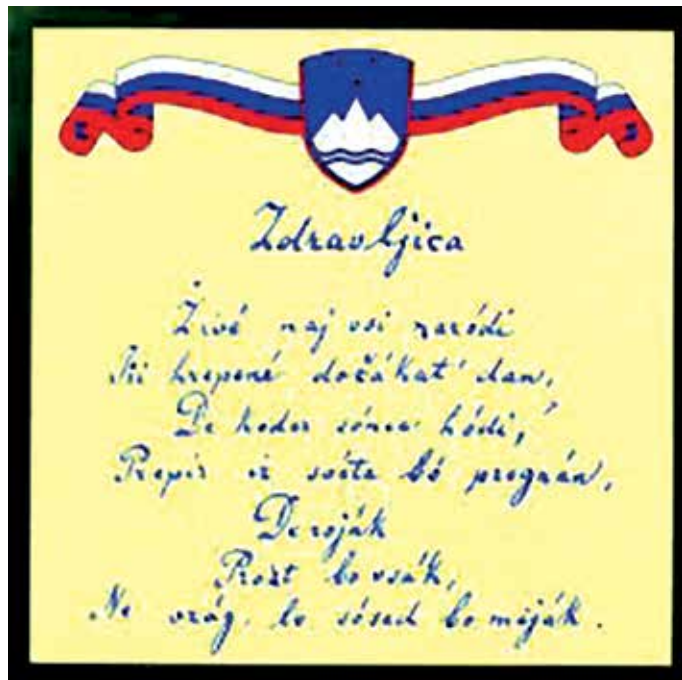 Zdravljica
Živé naj vsi naródi
Ki hrepené dočákat' dan,
De koder sónce hódi,
Prepir iz svéta bó pregnán,
De roják
Prost bo vsák,
Ne vrág, le sósed bo meják.